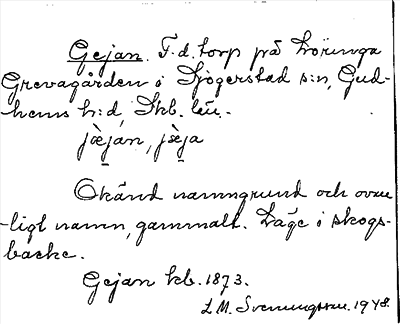 Gejan. F.d. torp på Löringa
Grevagården i Sjögerstad s:n, Gud-
hems h:d, Skb. län.
jæ̀ján, jæ̀ja
Okänd namngrund och ovan-
ligt namn, gammalt. Läge i skogs-
backe.
Gejan kb. 1873.
L.M. Svenungsson. 1948.